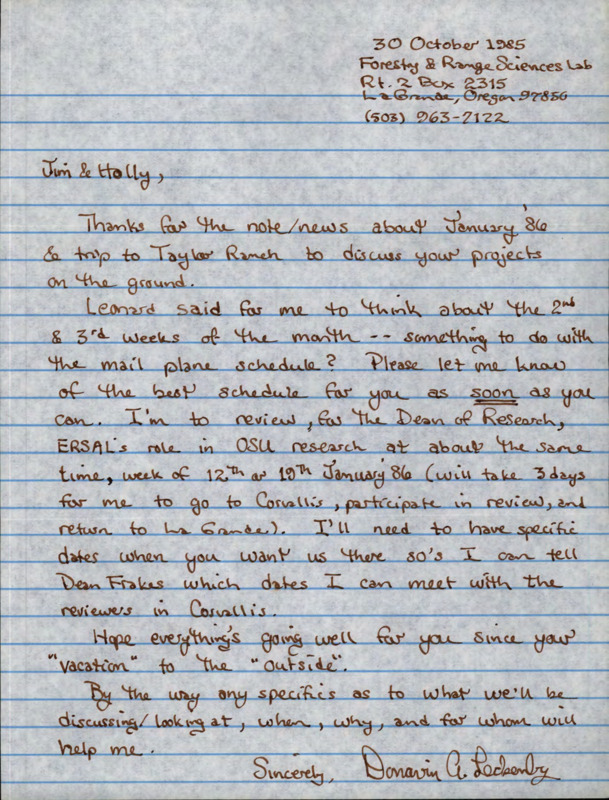 30 October 1985
Forestry & Range Sciences Lab
Rt. 2 Box 2315
La Grande, Oregon 97850
(503) 963-7122
Jim & Holly,
Thanks for the note/news about January '86
& trip to Taylor Ranch to discuss your projects
on the ground.
Leonard said for me to think about the 2nd
& 3rd weeks of the month -- something to do with
the mail plane schedule? Please let me know
of the best schedule for you as soon as you
can. I'm to review, for the Dean of Research,
ERSAL's role in OSU research at about the same
time, week of 12th or 19th January '86 (will take 3 days
for me to go to Corvallis, participate in review, and
return to La Grande). I'll need to have specific
dates when you want us there so's I can tell
Dean Frakes which dates I can meet with the
reviewers in Corvallis.
Hope everything's going well for you since your
"vacation" to the "outside".
By the way any specifics as to what we'll be
discussing/looking at, when, why, and for whom will
help me.
Sincerely, Donavin A. Leckenby